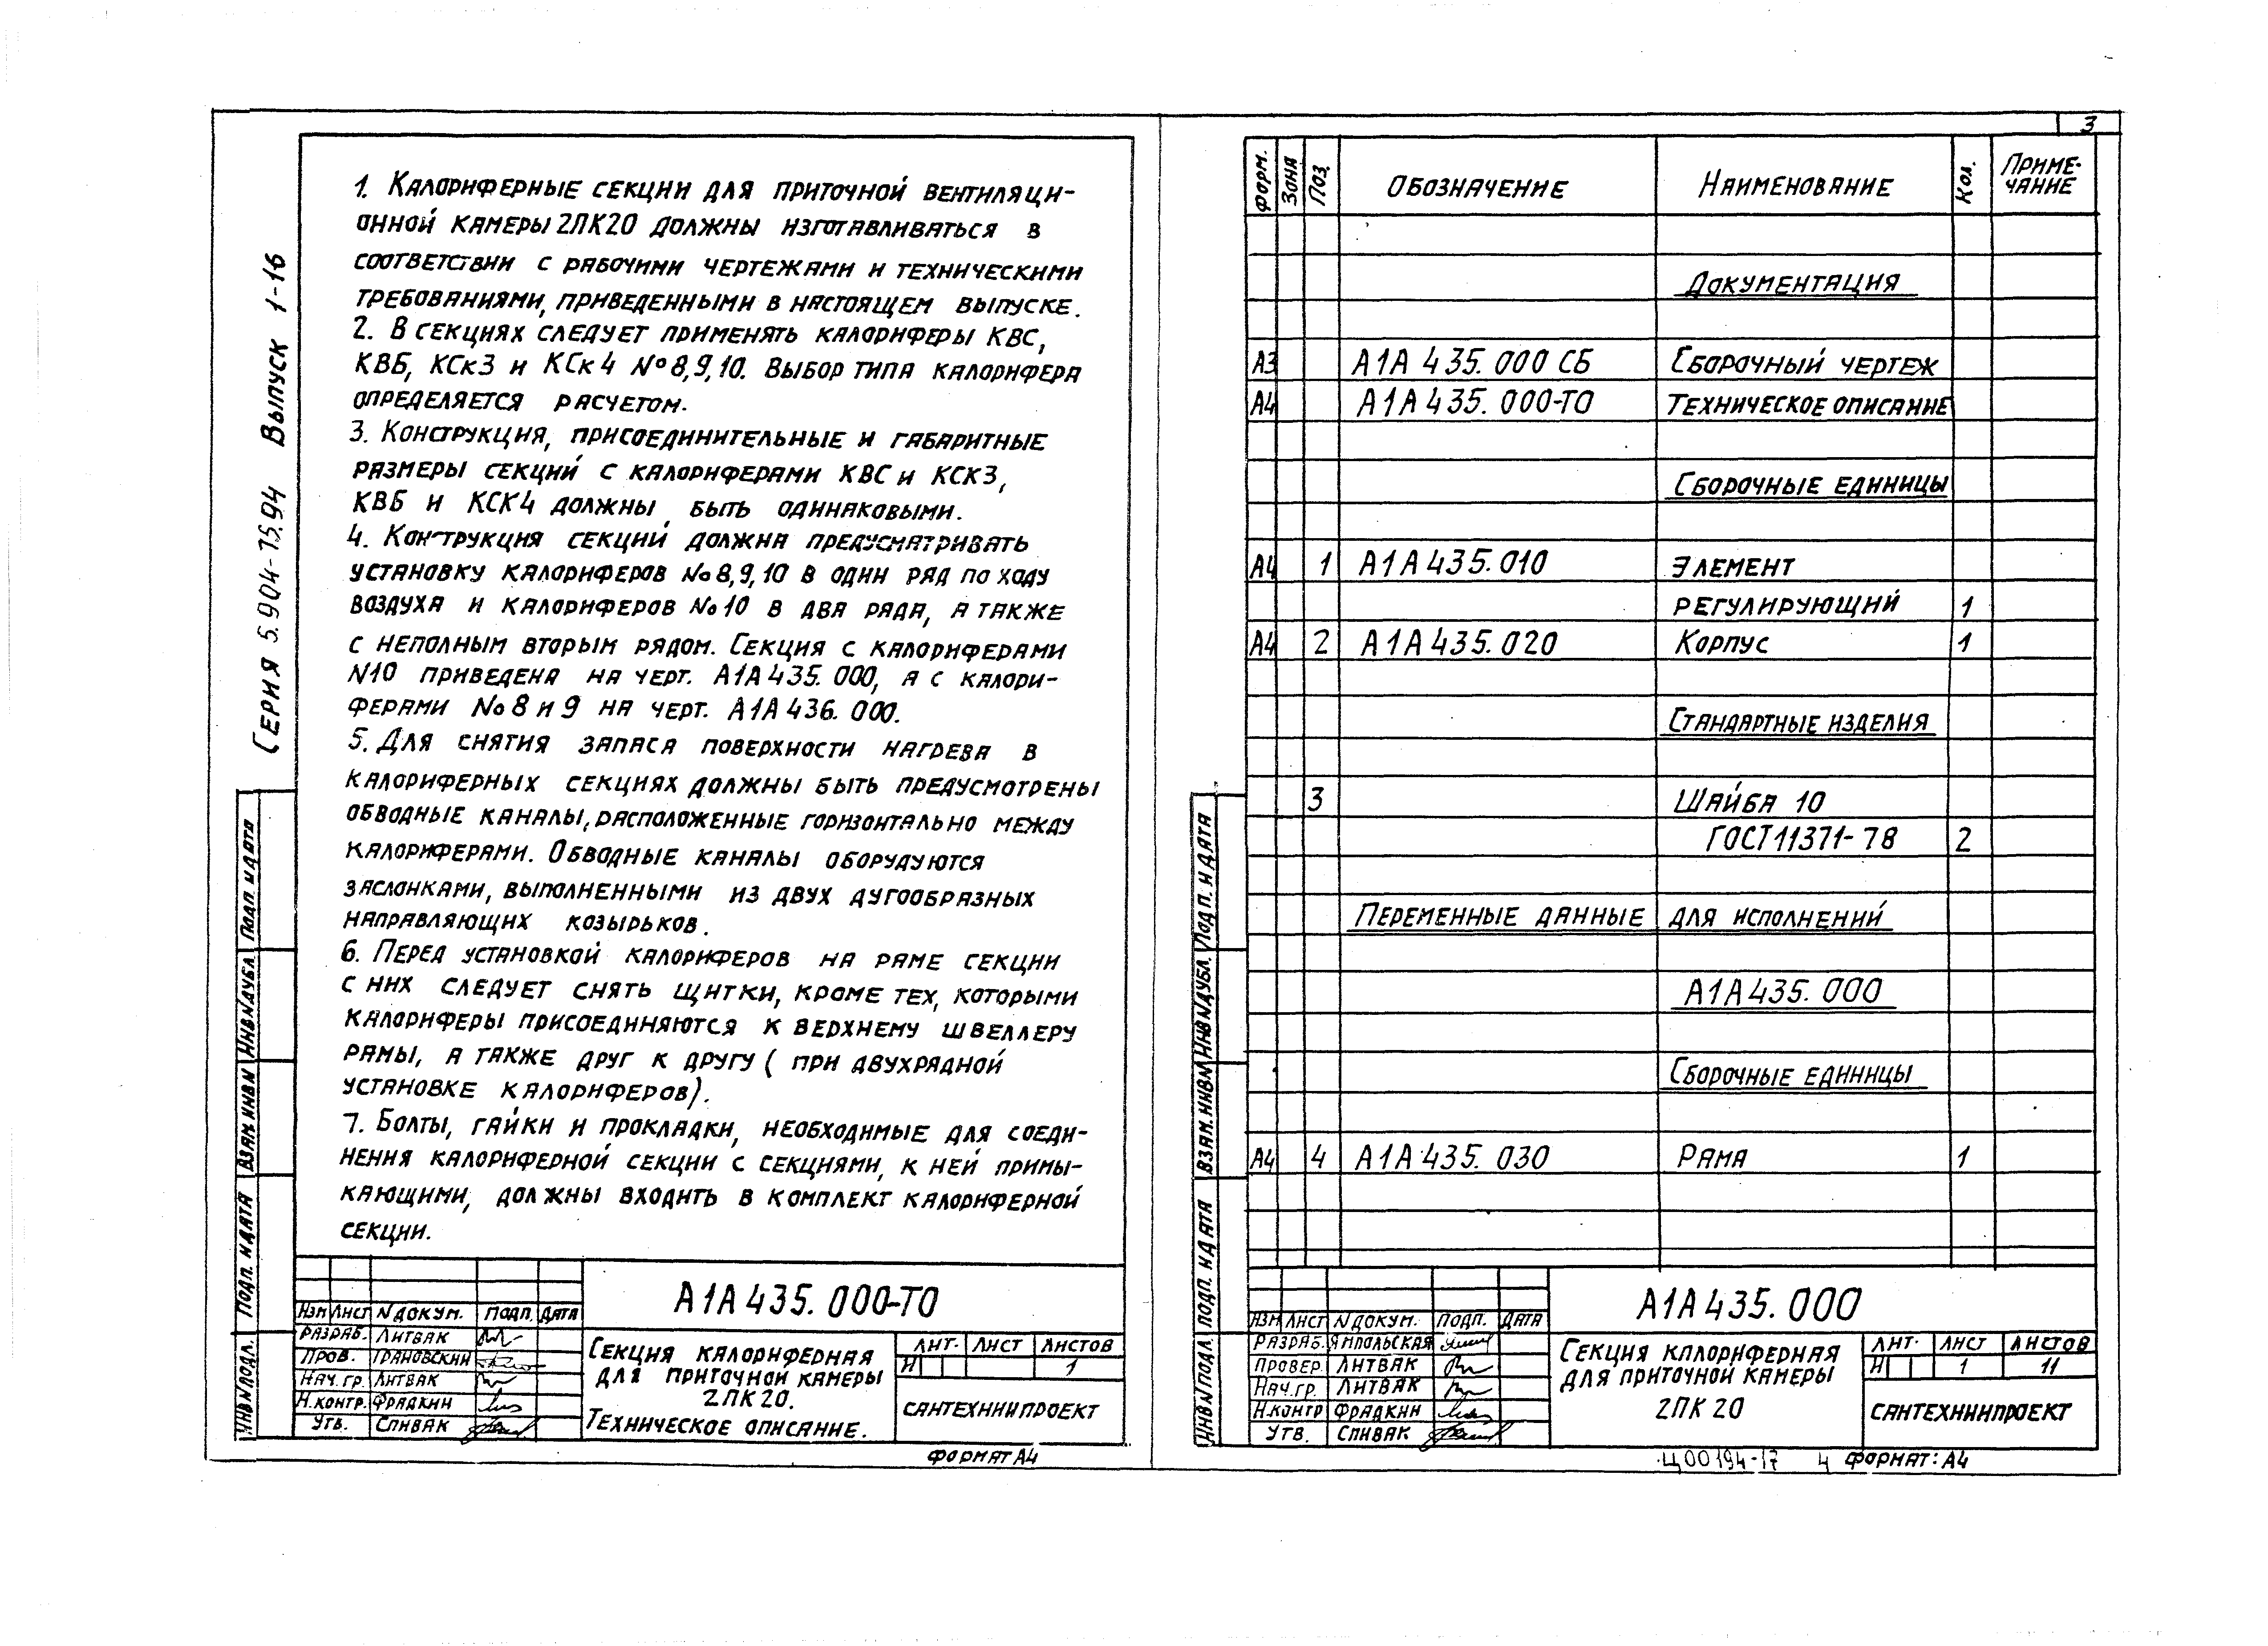 Серия 5.904-75.94 Выпуск 1-16
1. Калориферные секции для приточной вентиляци-
онной камеры 2ПК20 должны изготавливаться в
соответствии с рабочими чертежами и техническими
требованиями, приведенными в настоящем выпуске.
2. В секциях следует применять калориферы КВС,
КВБ, КСк3 и КСк4 №8,9,10. Выбор типа калорифера
определяется расчетом.
3. Конструкция, присоединительные и габаритные
размеры секций с калориферами КВС и КСК3,
КВБ и КСК4 должны быть одинаковыми.
4. Конструкция секций должна предусматривать
установку калориферов №8,9,10 в один ряд по ходу
воздуха и калориферов №10 в два ряда, а также
с неполным вторым рядом. Секция с калориферами
N10 приведена на черт. А1А435.000, а с калори-
ферами №8 и 9 на черт. А1А436.000.
5. Для снятия запаса поверхности нагрева в
калориферных секциях должны быть предусмотрены
обводные каналы, расположенные горизонтально между
калориферами. Обводные каналы оборудуются
заслонками, выполненными из двух дугообразных
направляющих козырьков.
6. Перед установкой калориферов на раме секции
с них следует снять щитки, кроме тех, которыми
калориферы присоединяются к верхнему швеллеру
рамы, а также друг к другу (при двухрядной
установке калориферов).
7. Болты, гайки и прокладки, необходимые для соеди-
нения калориферной секции с секциями, к ней примы-
кающими, должны входить в комплект калориферной
секции.
Подп. и дата
Инв N дубл.
Взам. инв N
Подп. и дата
Инв N подл.
А1А435.000-ТО
Изм Лист N докум. Подп. Дата
Разраб. Литвак
Пров. Грановский
Нач. гр. Литвак
Н.контр. Фрадкин
Утв. Спивак
Секция калориферная
для приточной камеры
2ПК20.
Техническое описание.
Лит. Лист Листов
И 1
Сантехниипроект
Формат А4
3
Форм. Зона Поз. Обозначение Наименование Кол. Приме-
чание
Документация
А3 А1А435.000 СБ Сборочный чертеж
А4 А1А435.000-ТО Техническое описание
Сборочные единицы
А4 1 А1А435.010 Элемент
регулирующий 1
А4 2 А1А435.020 Корпус 1
Стандартные изделия
3 Шайба 10
ГОСТ 11371-78 2
Переменные данные для исполнений
А1А435.000
Сборочные единицы
А4 4 А1А435.030 Рама 1
Подп. и дата
Инв N дубл.
Взам. инв N
Подп. и дата
Инв N подл.
А1А435.000
Изм Лист N докум. Подп. Дата
Разраб. Ямпольская
Провер. Литвак
Нач. гр. Литвак
Н.контр Фрадкин
Утв. Спивак
Секция калориферная
для приточной камеры
2ПК20
Лит. Лист Листов
И 1 11
Сантехниипроект
Ц00194-17 4 Формат: А4